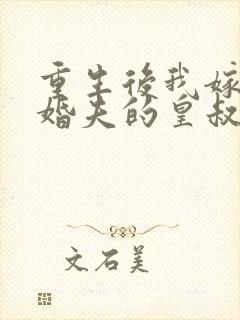 重生後我嫁
婚夫的皇叔
文石美